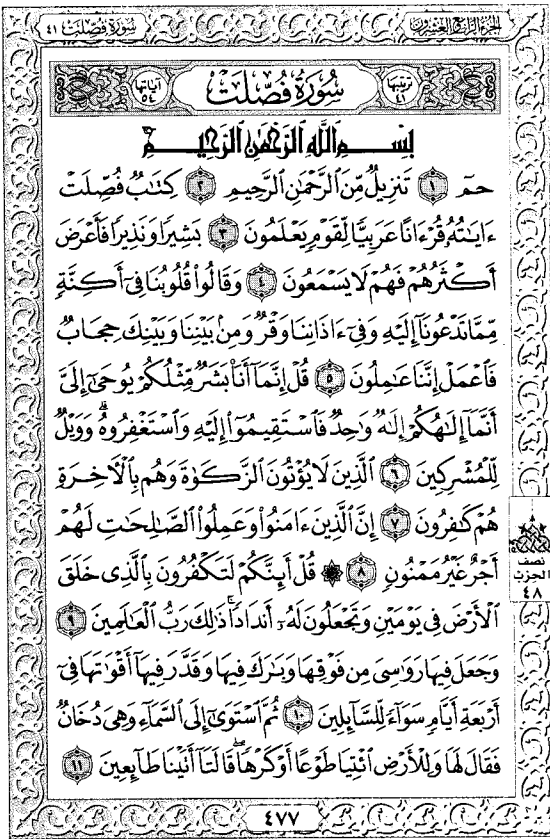 سُورَةُ فُصِّلَتْ ٤١
الجزء الرابع والعشرون
ترتيبها ٤١
سُورَةُ فُصِّلَتْ
آياتها ٥٤
بِسْمِ ٱللَّهِ ٱلرَّحْمَٰنِ ٱلرَّحِيمِ
حمٓ ١ تَنزِيلٌ مِّنَ ٱلرَّحْمَٰنِ ٱلرَّحِيمِ ٢ كِتَٰبٌ فُصِّلَتْ
ءَايَٰتُهُۥ قُرْءَانًا عَرَبِيًّا لِّقَوْمٍ يَعْلَمُونَ ٣ بَشِيرًا وَنَذِيرًا فَأَعْرَضَ
أَكْثَرُهُمْ فَهُمْ لَا يَسْمَعُونَ ٤ وَقَالُوا۟ قُلُوبُنَا فِىٓ أَكِنَّةٍ
مِّمَّا تَدْعُونَآ إِلَيْهِ وَفِىٓ ءَاذَانِنَا وَقْرٌ وَمِنۢ بَيْنِنَا وَبَيْنِكَ حِجَابٌ
فَٱعْمَلْ إِنَّنَا عَٰمِلُونَ ٥ قُلْ إِنَّمَآ أَنَا۠ بَشَرٌ مِّثْلُكُمْ يُوحَىٰٓ إِلَىَّ
أَنَّمَآ إِلَٰهُكُمْ إِلَٰهٌ وَٰحِدٌ فَٱسْتَقِيمُوٓا۟ إِلَيْهِ وَٱسْتَغْفِرُوهُ ۗ وَوَيْلٌ
لِّلْمُشْرِكِينَ ٦ ٱلَّذِينَ لَا يُؤْتُونَ ٱلزَّكَوٰةَ وَهُم بِٱلْءَاخِرَةِ
هُمْ كَٰفِرُونَ ٧ إِنَّ ٱلَّذِينَ ءَامَنُوا۟ وَعَمِلُوا۟ ٱلصَّٰلِحَٰتِ لَهُمْ
أَجْرٌ غَيْرُ مَمْنُونٍ ٨ ۞ قُلْ أَئِنَّكُمْ لَتَكْفُرُونَ بِٱلَّذِى خَلَقَ
ٱلْأَرْضَ فِى يَوْمَيْنِ وَتَجْعَلُونَ لَهُۥٓ أَندَادًا ۚ ذَٰلِكَ رَبُّ ٱلْعَٰلَمِينَ ٩
وَجَعَلَ فِيهَا رَوَٰسِىَ مِن فَوْقِهَا وَبَٰرَكَ فِيهَا وَقَدَّرَ فِيهَآ أَقْوَٰتَهَا فِىٓ
أَرْبَعَةِ أَيَّامٍ سَوَآءً لِّلسَّآئِلِينَ ١٠ ثُمَّ ٱسْتَوَىٰٓ إِلَى ٱلسَّمَآءِ وَهِىَ دُخَانٌ
فَقَالَ لَهَا وَلِلْأَرْضِ ٱئْتِيَا طَوْعًا أَوْ كَرْهًا قَالَتَآ أَتَيْنَا طَآئِعِينَ ١١
نصف
الحزب
٤٨
٤٧٧